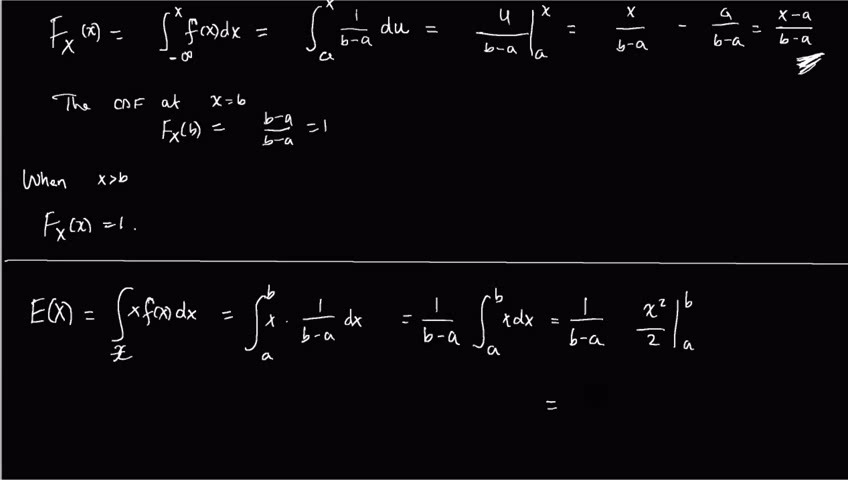 F_X(x) = ∫_{-∞}^{x} f(x)dx = ∫_{a}^{x} 1/(b-a) du = u/(b-a) |_{a}^{x} = x/(b-a) - a/(b-a) = (x-a)/(b-a)
The CDF at x=b
F_X(b) = (b-a)/(b-a) = 1
When x>b
F_X(x) = 1.
E(X) = ∫_{x} x f(x)dx = ∫_{a}^{b} x · 1/(b-a) dx = 1/(b-a) ∫_{a}^{b} x dx = 1/(b-a) x²/2 |_{a}^{b}
=